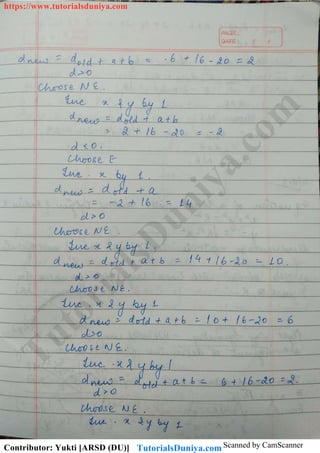 https://www.tutorialsduniya.com
PAGE:
DATE: / /
dnew = dold + a+b = .6 + 16 - 20 = 2
d>0
Choose NE.
Inc x & y by 1
dnew = dold + a+b
= 2 + 16 - 20 = -2
d<0.
Choose E
Inc. x by 1.
dnew = dold + a
= -2 + 16 = 14
d>0
Choose NE.
Inc x & y by 1.
dnew = dold + a+b = 14 + 16-20 = 10.
d>0
Choose NE.
Inc. x & y by 1
dnew = dold + a+b = 10+ 16-20 = 6
d>0
Choose NE.
Inc. x & y by 1
dnew = dold + a+b = 6+16-20=2.
d>0
Choose NE.
Inc. x & y by 1
TutorialsDuniya.com
Contributor: Yukti [ARSD (DU)] TutorialsDuniya.com Scanned by CamScanner